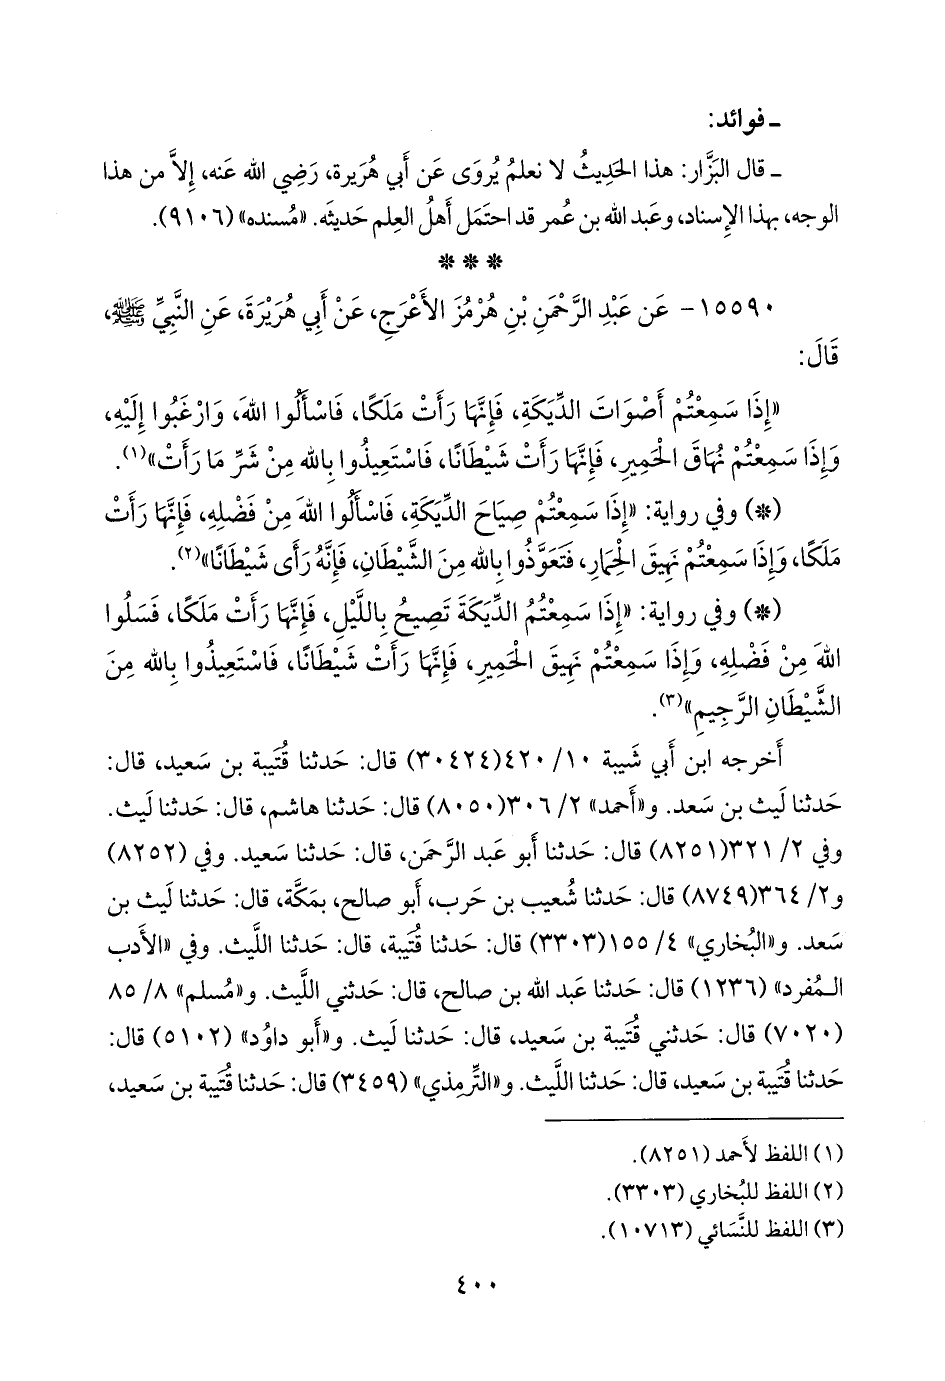 ـ فوائد:
ـ قال البَزَّار: هذا الحَديثُ لا نعلمُ يُروَى عَن أَبي هُرَيرة، رَضِي الله عَنه، إِلاَّ من هذا
الوجه، بهذا الإِسناد، وعَبد الله بن عُمر قد احتَمَل أَهلُ العِلم حَديثَه. «مُسنده» (٩١٠٦).
* * *
١٥٥٩٠ - عَن عَبْدِ الرَّحْمَنِ بْنِ هُرْمُزَ الأَعْرَجِ، عَنْ أَبِي هُرَيْرَةَ، عَنِ النَّبِيِّ ﷺ،
قَالَ:
«إِذَا سَمِعْتُمْ أَصْوَاتَ الدِّيَكَةِ، فَإِنَّهَا رَأَتْ مَلَكًا، فَاسْأَلُوا اللهَ، وَارْغَبُوا إِلَيْهِ،
وَإِذَا سَمِعْتُمْ نُهَاقَ الْحَمِيرِ، فَإِنَّهَا رَأَتْ شَيْطَانًا، فَاسْتَعِيذُوا بِالله مِنْ شَرِّ مَا رَأَتْ»(١).
(*) وفي رواية: «إِذَا سَمِعْتُمْ صِيَاحَ الدِّيَكَةِ، فَاسْأَلُوا اللهَ مِنْ فَضْلِهِ، فَإِنَّهَا رَأَتْ
مَلَكًا، وَإِذَا سَمِعْتُمْ نَهِيقَ الْحِمَارِ، فَتَعَوَّذُوا بِالله مِنَ الشَّيْطَانِ، فَإِنَّهُ رَأَى شَيْطَانًا»(٢).
(*) وفي رواية: «إِذَا سَمِعْتُمُ الدِّيَكَةَ تَصِيحُ بِاللَّيْلِ، فَإِنَّهَا رَأَتْ مَلَكًا، فَسَلُوا
اللهَ مِنْ فَضْلِهِ، وَإِذَا سَمِعْتُمْ نَهِيقَ الْحَمِيرِ، فَإِنَّهَا رَأَتْ شَيْطَانًا، فَاسْتَعِيذُوا بِالله مِنَ
الشَّيْطَانِ الرَّجِيمِ»(٣).
أَخرجه ابن أَبي شَيبة ١٠/ ٤٢٠(٣٠٤٢٤) قال: حَدثنا قُتَيبة بن سَعيد، قال:
حَدثنا لَيث بن سَعد. و«أَحمد» ٢/ ٣٠٦(٨٠٥٠) قال: حَدثنا هاشم، قال: حَدثنا لَيث.
وفي ٢/ ٣٢١(٨٢٥١) قال: حَدثنا أَبو عَبد الرَّحمَن، قال: حَدثنا سَعيد. وفي (٨٢٥٢)
و٢/ ٣٦٤(٨٧٤٩) قال: حَدثنا شُعيب بن حَرب، أَبو صالح، بمَكَّة، قال: حَدثنا لَيث بن
سَعد. و«البُخاري» ٤/ ١٥٥(٣٣٠٣) قال: حَدثنا قُتَيبة، قال: حَدثنا اللَّيث. وفي «الأَدب
المُفرد» (١٢٣٦) قال: حَدثنا عَبد الله بن صالح، قال: حَدثني اللَّيث. و«مُسلم» ٨/ ٨٥
(٧٠٢٠) قال: حَدثني قُتَيبة بن سَعيد، قال: حَدثنا لَيث. و«أَبو داوُد» (٥١٠٢) قال:
حَدثنا قُتَيبة بن سَعيد، قال: حَدثنا اللَّيث. و«التِّرمِذي» (٣٤٥٩) قال: حَدثنا قُتَيبة بن سَعيد،
(١) اللفظ لأَحمد (٨٢٥١).
(٢) اللفظ للبُخاري (٣٣٠٣).
(٣) اللفظ للنَّسَائي (١٠٧١٣).
٤٠٠